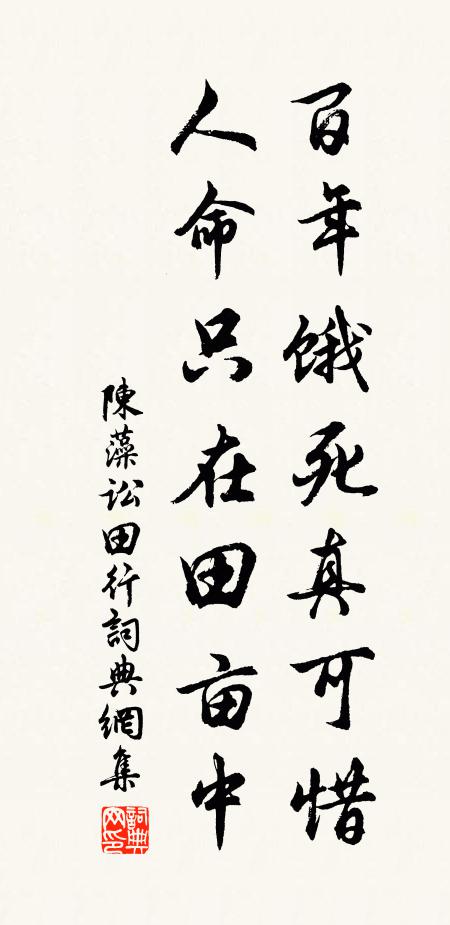 百年饿死真可惜
人命只在田亩中
陳藻訟田行詞典網集
詞典网印